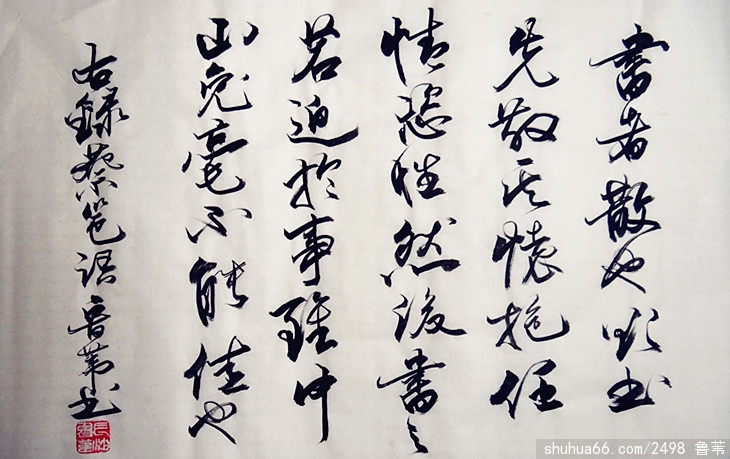 書者散也欲书
先散其懷抱任
情恣性然後書之
若迫於事雖中
山兔毫不能佳也
右録蔡邕語 鲁苇书
shuhua66.com/2498 鲁苇